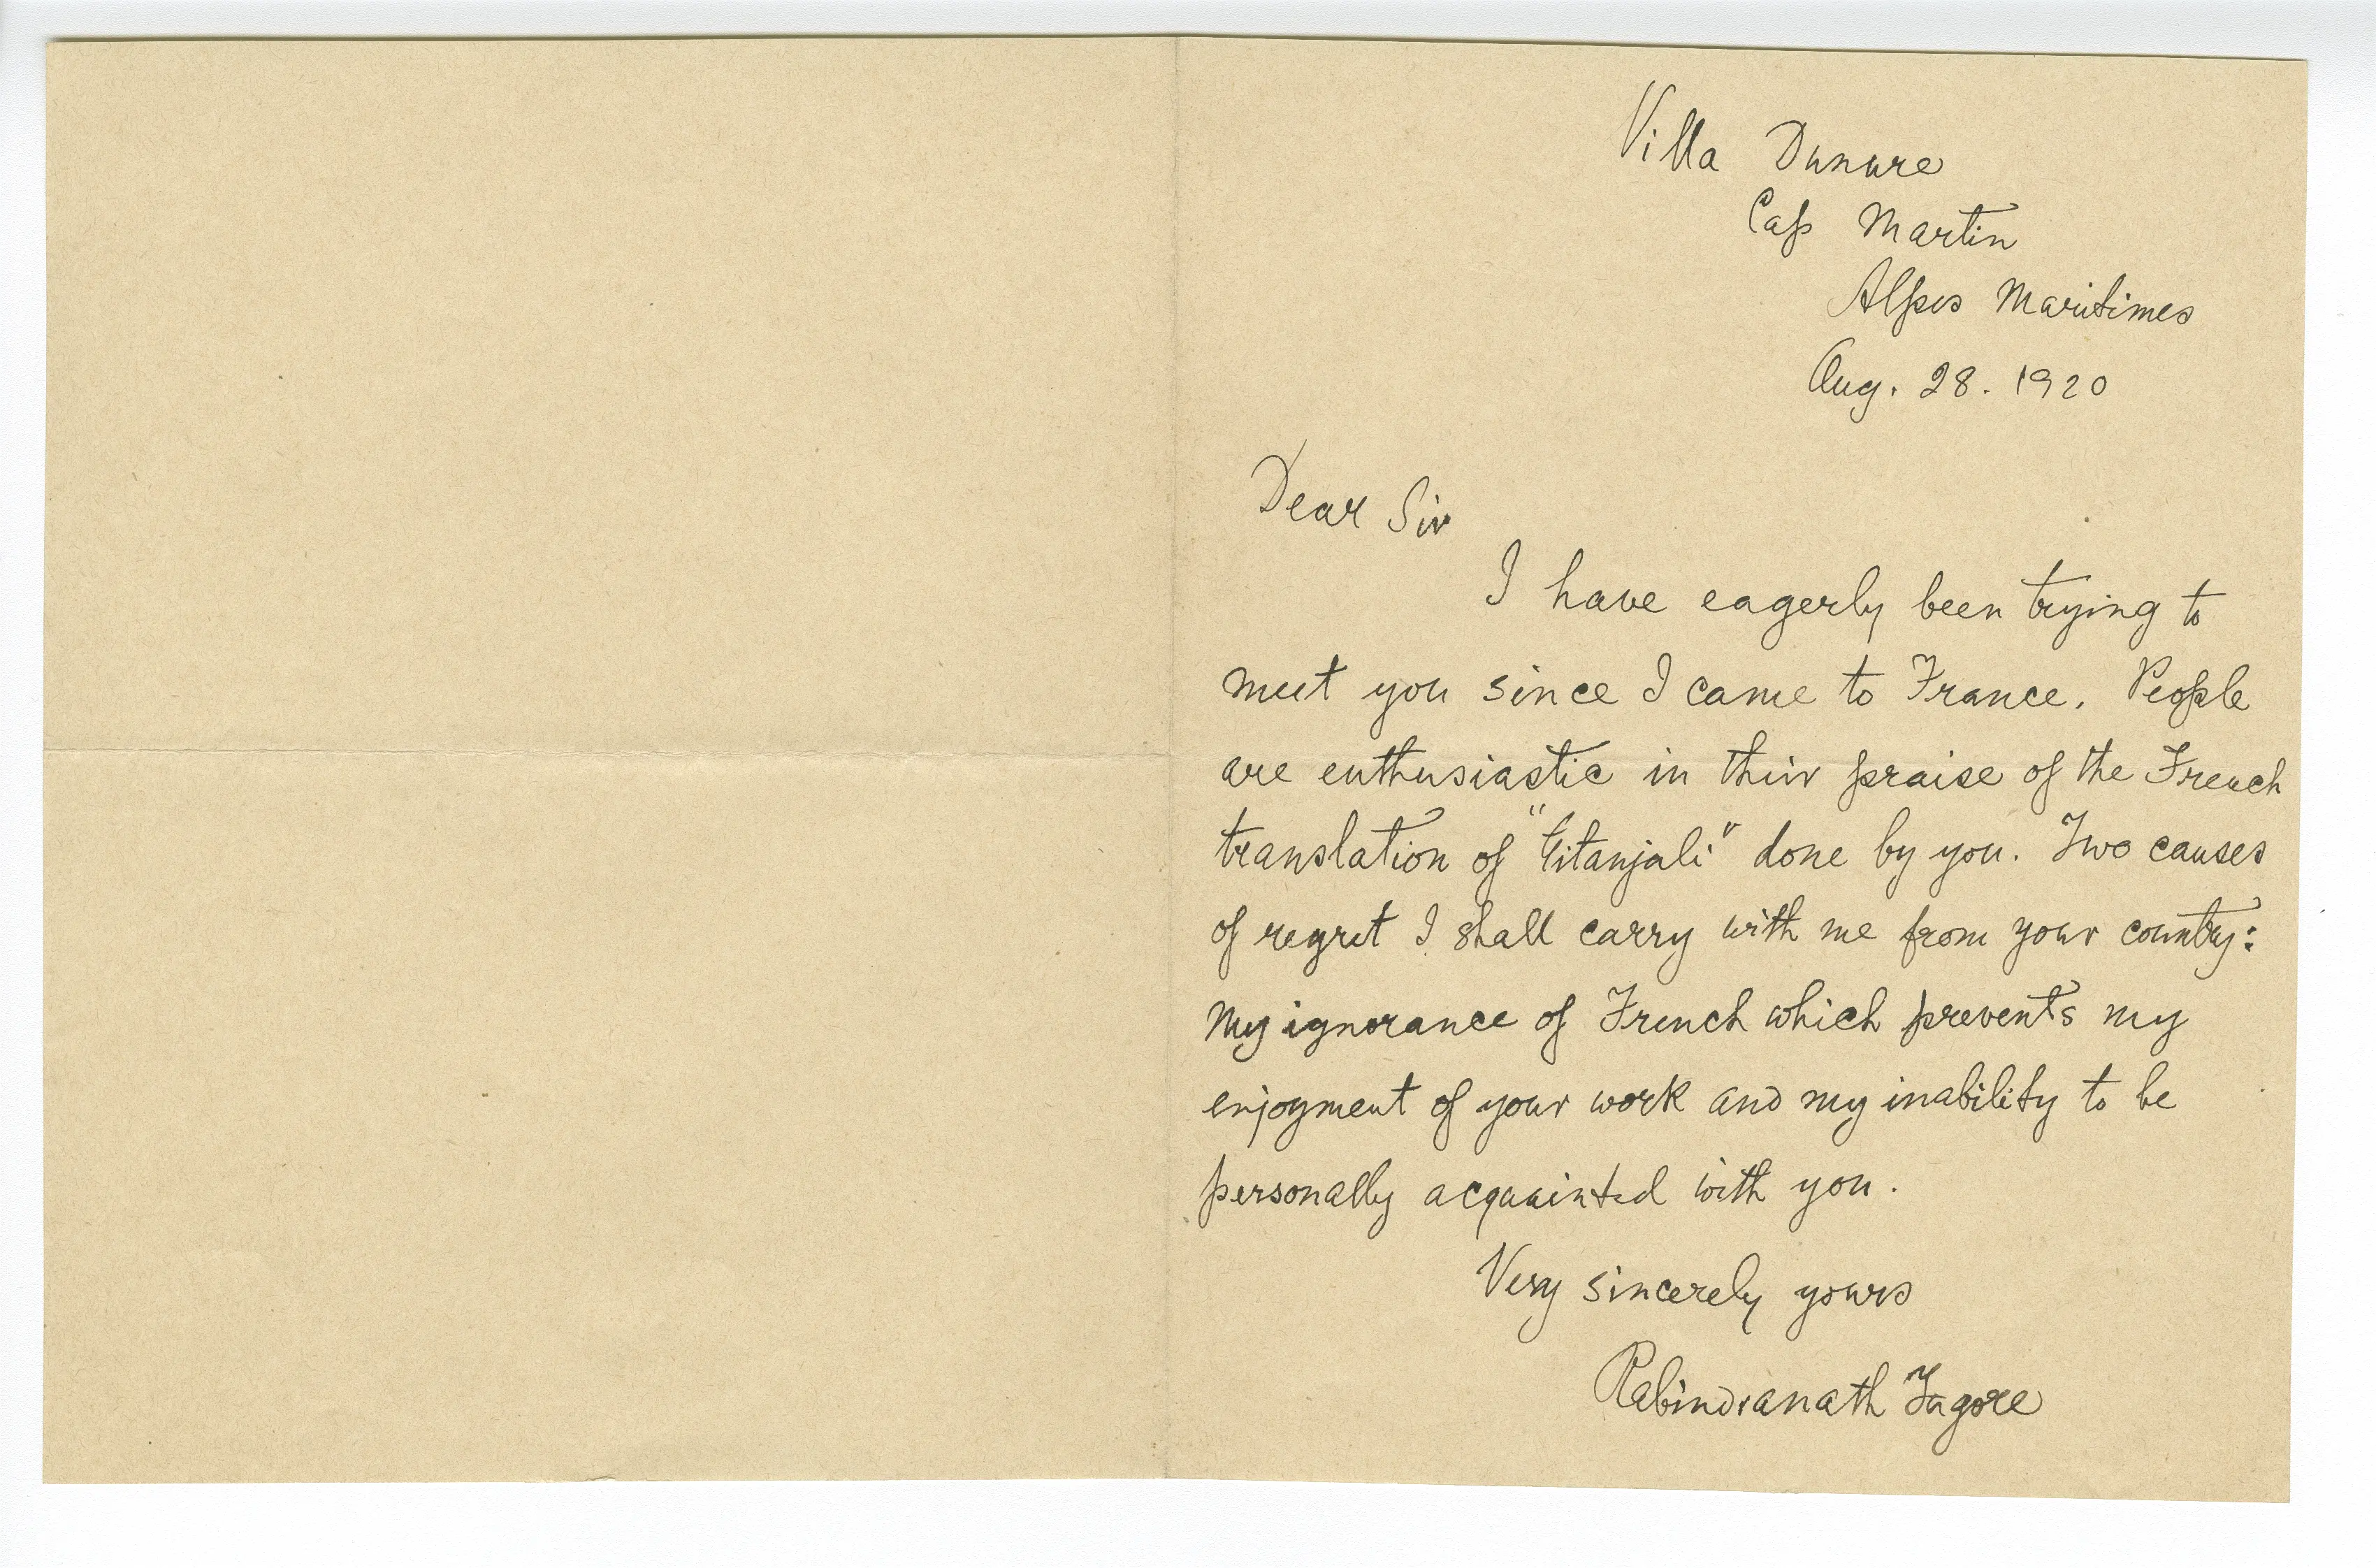 Villa Dunure
Cap Martin
Alpes Maritimes
Aug. 28. 1920
Dear Sir
I have eagerly been trying to
meet you since I came to France. People
are enthusiastic in their praise of the French
translation of "Gitanjali" done by you. Two causes
of regret I shall carry with me from your country:
my ignorance of French which prevents my
enjoyment of your work and my inability to be
personally acquainted with you.
Very sincerely yours
Rabindranath Tagore